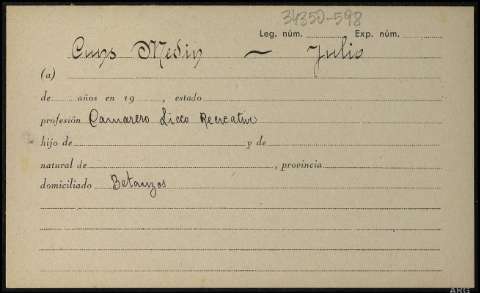 34350-598
Leg. núm. Exp. núm.
Medin — Julio
(a)
de años en 19 , estado
profesión Camarero Liceo Recreativo
hijo de y de
natural de , provincia
domiciliado Betanzos
ARG